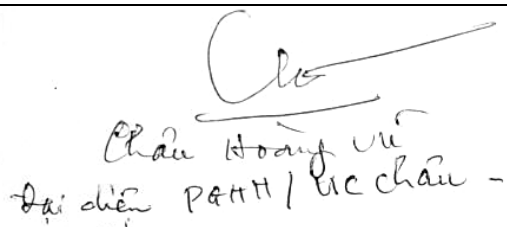 Châu Hoàng Vũ
Đại diện PGHH / Úc châu -